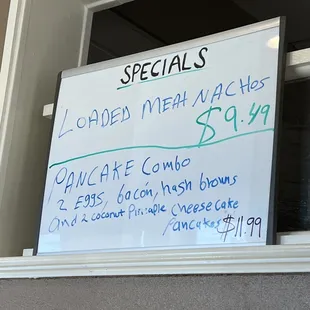 SPECIALS
LOADED MEAT NACHOS
$9.49
PANCAKE Combo
2 EGGS, bacon, hash browns
and 2 coconut Pineaple Cheesecake
Pancakes $11.99